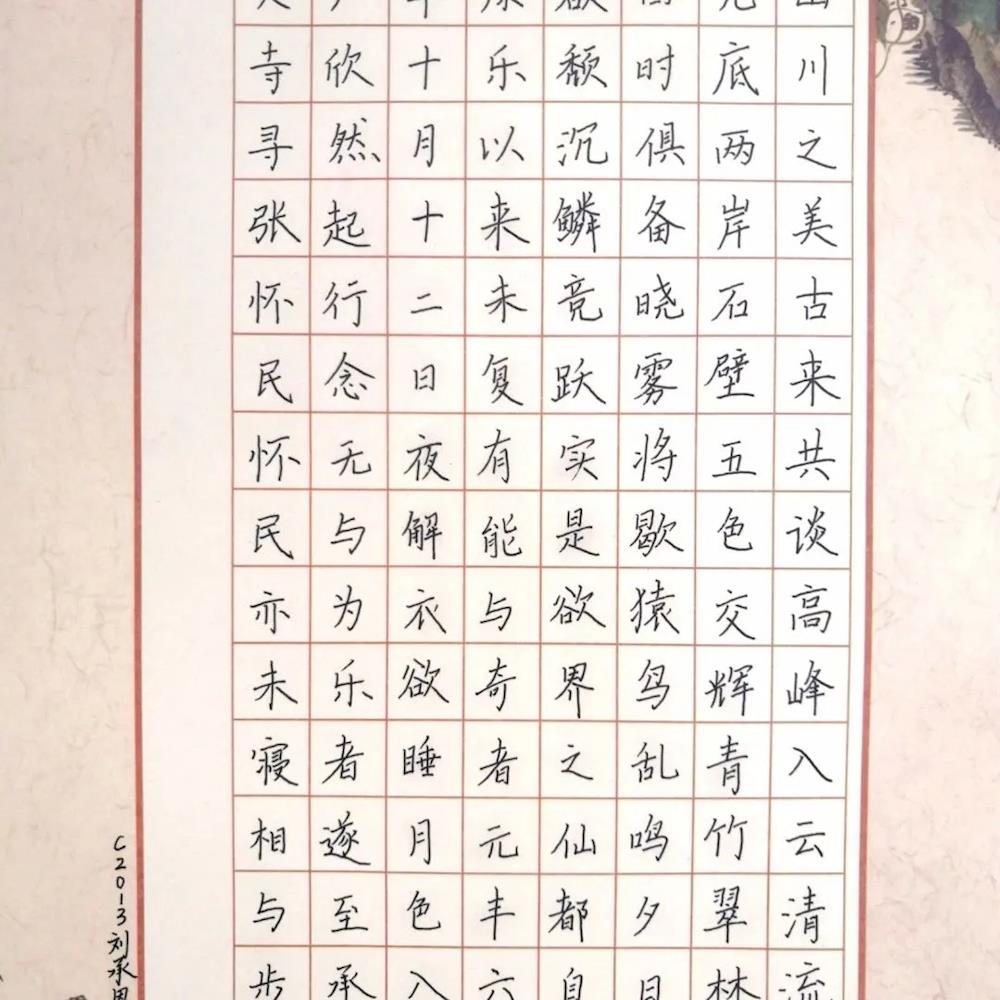 川之美古来共谈高峰入云清流
底两岸石壁五色交辉青竹翠林
时俱备晓雾将歇猿鸟乱鸣夕日
颓沉鳞竞跃实是欲界之仙都自
乐以来未复有能与奇者元丰六
十月十二日夜解衣欲睡月色入
欣然起行念无与为乐者遂至承
寺寻张怀民怀民亦未寝相与步
C2013刘承